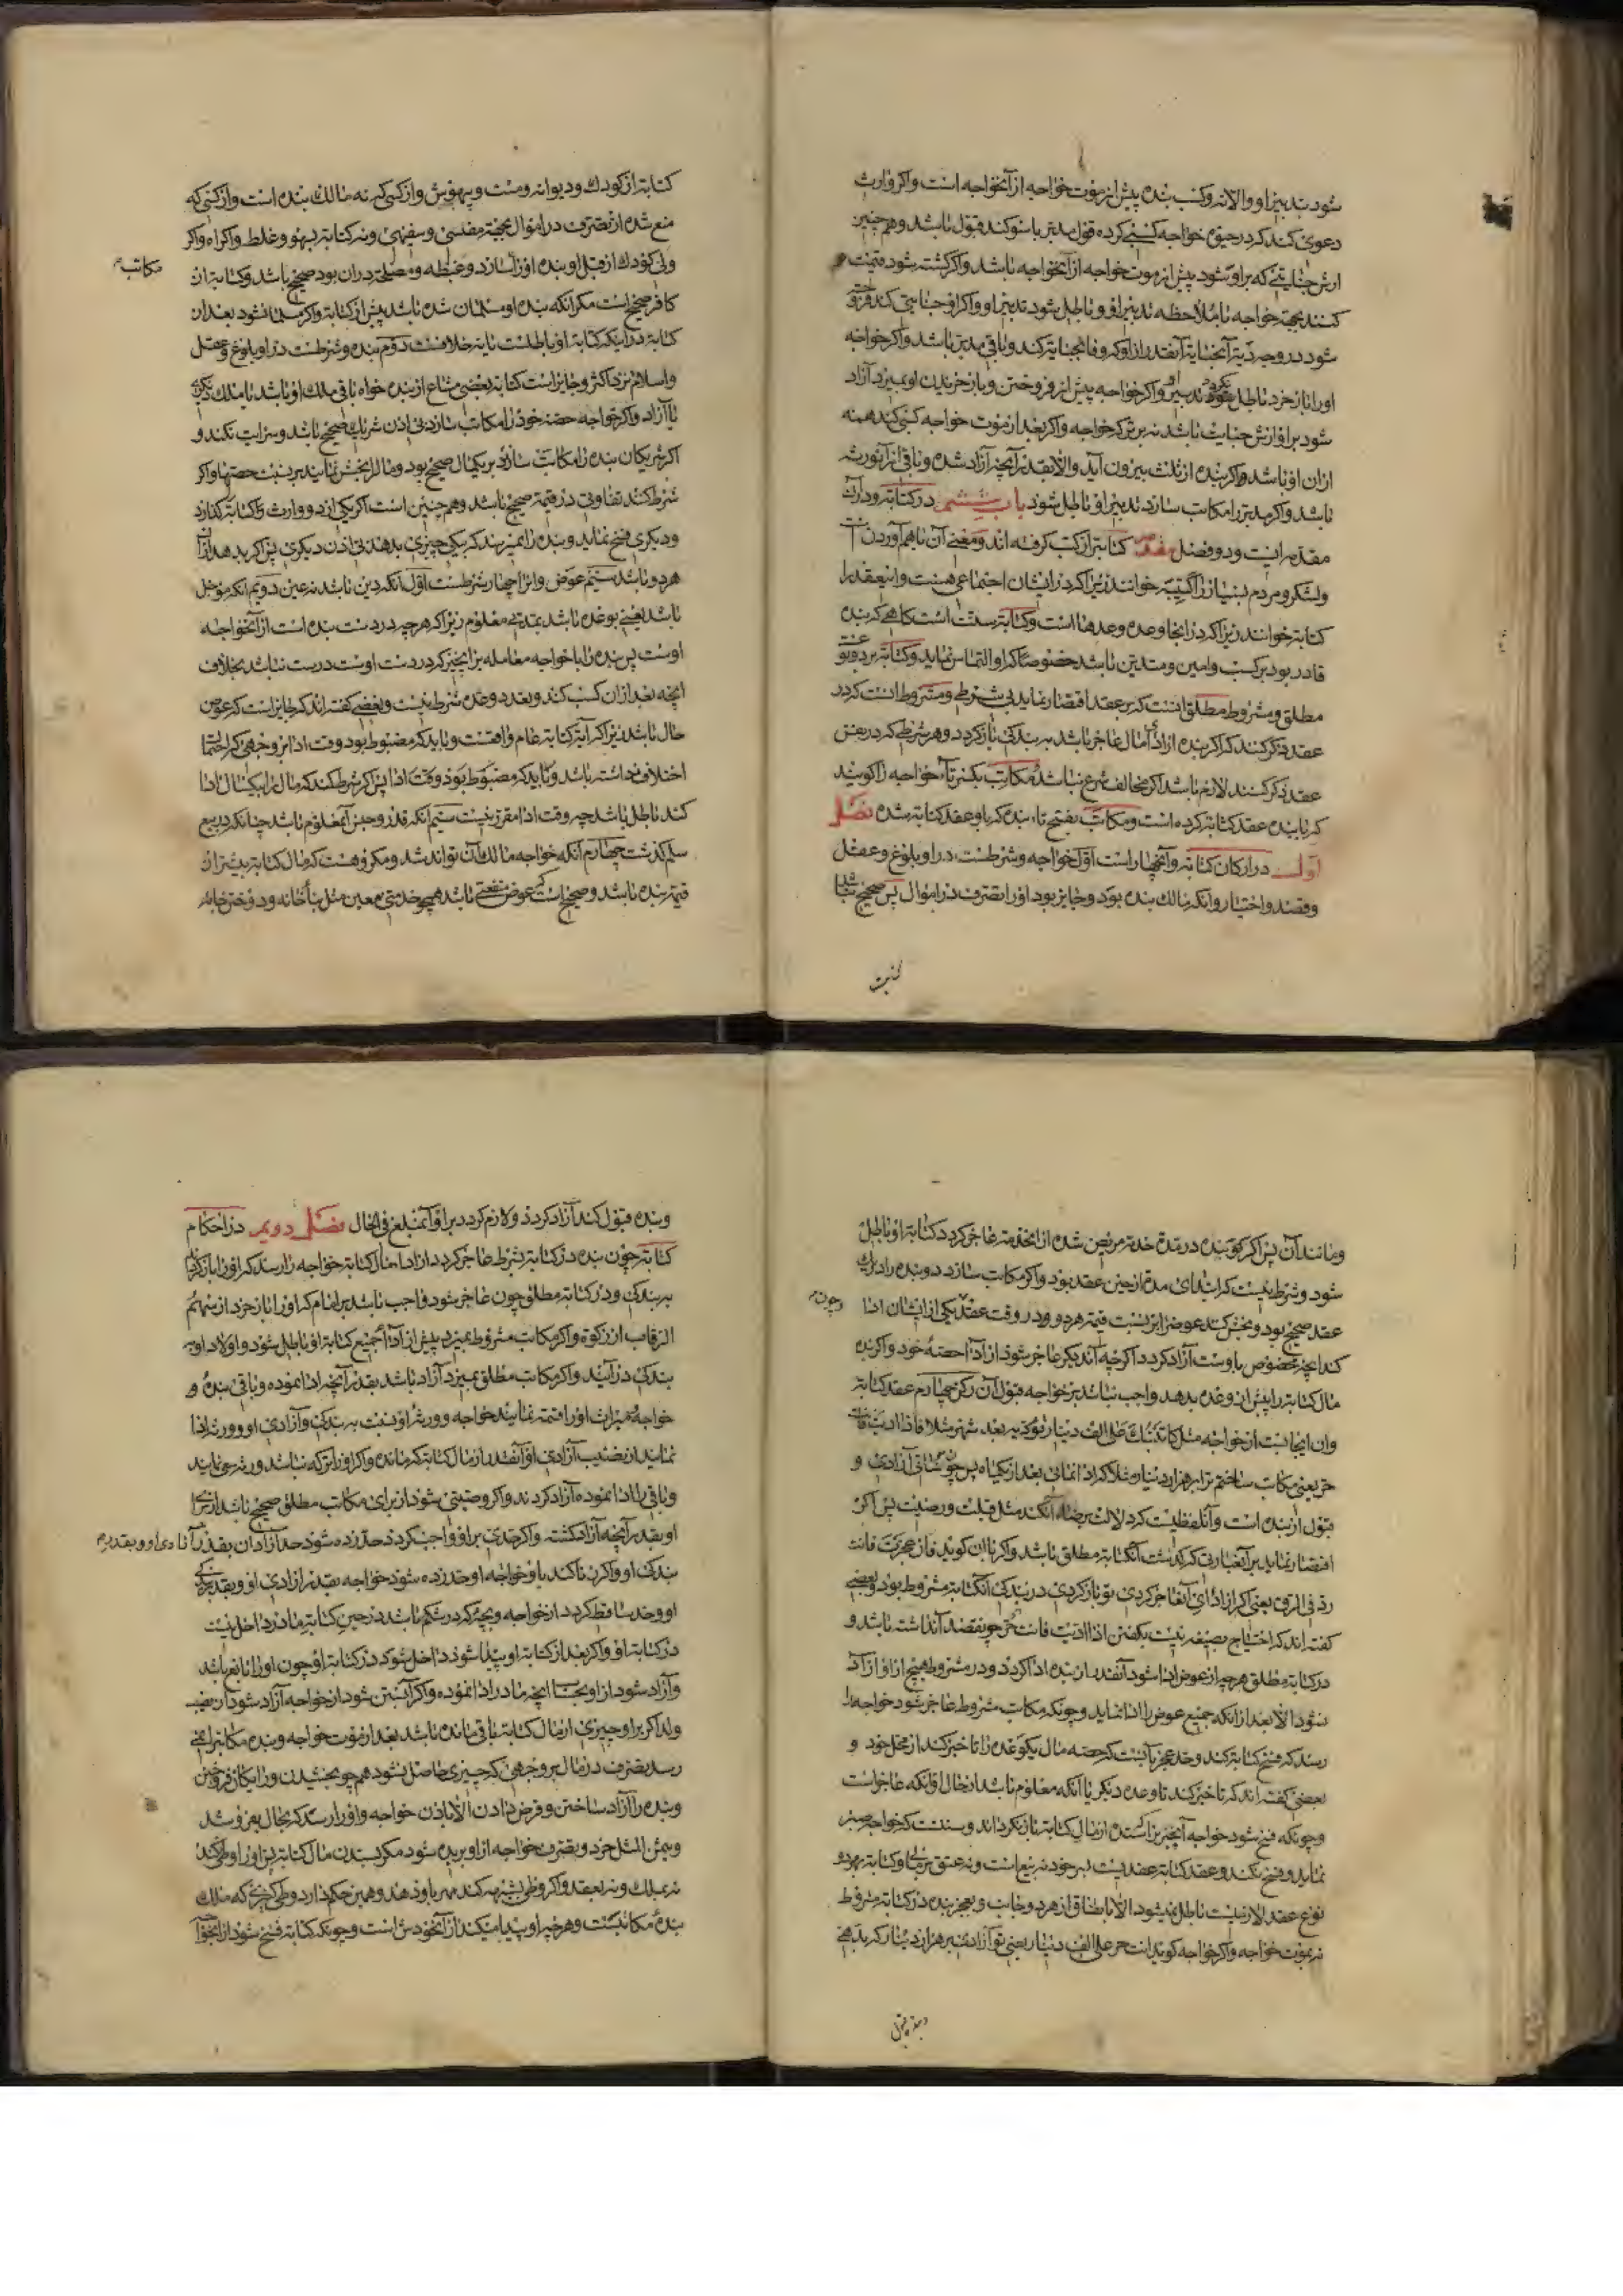 شود تدبیر او والا نه وکسب بنده پیش از موت خواجه از آنخواجه است واکر وارث
دعوی کند که در حیوة خواجه کسبی کرده قول مدبر با سوکند قبول باشد وهم چنین
ارش جنایتی که بر او شود پیش از موت خواجه از آنخواجه باشد واکر کشته شود قیمت
کنند بجهة خواجه با ملاحظه تدبیر او وباطل شود تدبیر او واکر او جنایتی کند فروخته
شود در وجه دیة آنجنایة آنقدر از او که وفا بجنایة کند وباقی مدبر باشد واکر خواجه
او را باز خرد باطل نکردد تدبیر او واکر خواجه پیش از فروختن وباز خریدن او بمیرد آزاد
شود بر او ارش جنایت باشد نه بر ترکه خواجه واکر بعد از موت خواجه کسبی کند همه
از ان او باشد واکر بنده از ثلث بیرون آید والا بقدر آنچه آزاد شده وباقی از آن ورثه
باشد واکر مدبر را مکاتب سازد تدبیر او باطل شود باب ششم در کتابة ودر آن
مقدمه ایست ودو فصل مقدمه کتابة از کتب کرفته اند ومعنی آن باهم آوردن است
ولشکر ومردم بسیار را کتیبه خوانند زیرا که در ایشان اجتماعی هست واین عقد را
کتابة خوانند زیرا که در اینجا وعده وعدهها است وکتابة سنت است کاهی که بنده
قادر بود بر کسب وامین ومتدین باشد خصوصا که او التماس نماید وکتابة بر دو نوعست
مطلق ومشروط مطلق آنست که بر عقد اقتصار نماید بی شرطی ومشروط آنست که در
عقد ذکر کنند که اکر بنده از ادای مال عاجز باشد به بندکی باز کردد وهر شرطی که در ضمن
عقد ذکر کنند لازم باشد اکر مخالف شرع نباشد مکاتب بکسر تاء خواجه را کویند
که با بنده عقد کتابة کرده است ومکاتب بفتح تاء بنده که با او عقد کتابة شده فصل
اول در ارکان کتابة وآن چهار است اول خواجه وشرطست در او بلوغ وعقل
وقصد واختیار وانکه مالک بنده بود وجایز بود او را تصرف در اموال پس صحیح نباشد
کتابة از کودک ودیوانه ومست وبیهوش واز کسی که نه مالک بنده است واز کسی که
منع شده از تصرف در اموال بجهة مفلسی وسفیهی ونه کتابة بسهو وغلط واکراه واکر
ولی کودک از قبل او بنده او را سازد وغبطه ومصلحة در ان بود صحیح باشد وکتابة از
مکاتب
کافر صحیح است مکر انکه بنده او مسلمان شده باشد پیش از کتابة واکر مسلمان شود بعد از ان
کتابة در اینکه کتابة او باطلست یا نه خلافست دوم بنده وشرطست در او بلوغ وعقل
واسلام نزد اکثر وجایز است کتابة بعضی مشاع از بنده خواه باقی ملک او باشد یا ملک دیکری
یا آزاد واکر خواجه حصه خود را مکاتب سازد بی اذن شریک صحیح باشد وسرایت نکند و
اکر شریکان بنده را مکاتب سازند بر یکمال صحیح بود ومال را بخش نمایند بر نسبت حصه‌ها واکر
شرط کنند تفاوتی در قیمة صحیح باشد وهم چنین است اکر یکی از دو وارث را کتابة کذارد
ودیکری فسخ نماید وبنده را نمیرسد که بیکی چیزی بدهد بی اذن دیکری پس اکر بدهد از آن
هر دو باشد سیم عوض وانرا چهار شرطست اول آنکه دین باشد نه عین دویم انکه مؤجل
باشد یعنی بوعده باشد بمدتی معلوم زیرا که هر چه در دست بنده است از آن خواجه
اوست پس بنده را با خواجه معامله بر انچیز که در دست اوست درست نباشد بخلاف
انچه بعد از ان کسب کند وتعدد وعده شرط نیست وبعضی کفته اند که جایز است که عوض
حال باشد زیرا که آیة کتابة عام واقعست وباید که مضبوط بود وقت ادا بر وجهی که احتمال
اختلاف نداشته باشد وباید که مضبوط بود وقت ادا پس اکر شرط کند که مال را بیکسال ادا
کند باطل باشد چه وقت ادا مقرر نیست سیم آنکه قدر وجنس آن معلوم باشد چنانکه در بیع
سلم کذشت چهارم آنکه خواجه مالک آن تواند شد ومکروهست که مال کتابة بیشتر از
قیمة بنده باشد وصحیح است که عوض منفعتی باشد همچو خدمتی معین مثل بنا خانه ودوختن جامه
ومانند آن پس اکر کوبنده در مدة خدمة مریض شده از انخدمة عاجز کردد کتابة او باطل
شود وشرط نیست که ابتدای مدة از حین عقد بود واکر مکاتب سازد دو بنده را در یک
عقد صحیح بود وبخش کند عوض را بر نسبت قیمة هر دو در وقت عقد یکی از ایشان ادا
کند انچه مخصوص باوست آزاد کردد اکر چه آن دیکر عاجز شود از ادا حصه خود واکر بنده
مال کتابة را پیش از وعده بدهد واجب نباشد بر خواجه قبول آن رکن چهارم عقد کتابة
وان ایجابست از خواجه مثل کاتبتک علی الف دینار تؤدیه بعد شهر مثلا فاذا ادیت فانت
حر یعنی مکاتب ساختم ترا بر هزار دینار مثلا که ادا نمائی بعد از یکماه پس چون آزادی و
قبول از بنده است وآن لفظیست که دلالت بر رضا آن کند مثل قبلت ورضیت پس اکر
اقتصار نماید بر آنعبارتی که کذشت آن کتابة مطلق باشد واکر با ان کوید فان عجزت فانت
رد فی الرق یعنی اکر از ادای آن عاجز کردی تو باز کردی در بندکی آن کتابة مشروط بود وبعضی
کفته اند که احتیاج بصیغه نیست بکفتن اذا ادیت فانت حر چو قصد آن داشته باشد و
در کتابة مطلق هر چه از عوض ادا شود آنقدر از بنده ازاد کردد ودر مشروط هیچ از او ازاد
نشود الا بعد از انکه جمیع عوض را ادا نماید وچونکه مکاتب مشروط عاجز شود خواجه را
رسد که فسخ کتابة کند وحد عجز یا آنست که حصه مال یکوعده را تا خیر کند از محل خود و
بعضی کفته اند که تا خیر کند تا وعده دیکر یا آنکه معلوم باشد از حال او انکه عاجز است
وچونکه فسخ شود خواجه آنچیز را که ستده از مال کتابة باز نکرداند وسنت که خواجه صبر
نماید وفسخ نکند وعقد کتابة عقدیست بسر خود نه بیع است ونه عتق وکتابة بهر دو
نوع عقد لازمست باطل نمیشود الا باطلاق از هر دو جانب وبعجز بنده در کتابة مشروط
نه بموت خواجه واکر خواجه کوید انت حر علی الف دینار یعنی تو آزادی بر هزار دینار که بدهی
وبنده قبول کند آزاد کردد ولازم کردد بر او آنمبلغ فی الحال فصل دویم در احکام
کتابة چون بنده در کتابة بشرط عاجز کردد از اداء مال کتابة خواجه را رسد که او را باز کرداند
به بندکی ودر کتابة مطلق چون عاجز شود واجب باشد بر امام که او را باز خرد از سهم
الرقاب از زکوة واکر مکاتب مشروط بمیرد پیش از ادا جمیع کتابة او باطل شود واولاد او به
بندکی در آیند واکر مکاتب مطلق بمیرد آزاد باشد بقدر آنچه ادا نموده وباقی بنده و
خواجه میراث او را قسمة نمایند خواجه وورثه او نسبت به بندکی وآزادی او وورثه ادا
نمایند از نصیب آزادی او آنقدر از مال کتابة که مانده واکر او را ترکه نباشد ورثه سعی نمایند
وباقی را ادا نموده آزاد کردند واکر وصیتی شود از برای مکاتب مطلق صحیح باشد از برای
او بقدر آنچه آزاد کشته واکر حدی بر او واجب کردد حد زده شود حد آزادان بقدر آزادی او وبقدر
بندکی او واکر زنا کند با او خواجه او حد زده شود خواجه بقدر ازادی او وبقدر بندکی
او حد ساقط کردد از خواجه وبچه که در شکم باشد در حین کتابة مادر داخل نیست
در کتابة او واکر بعد از کتابة او پیدا شود داخل شود در کتابة او چون او را تابع باشد
وآزاد شود از او بحساب انچه مادر ادا نموده واکر آبستن شود از خواجه آزاد شود از نصیب
ولد اکر بر او چیزی از مال کتابة باقی مانده باشد بعد از موت خواجه وبنده مکاتب را نمی
رسد تصرف در مال بر وجهی که چیزی حاصل نشود همچو بخشیدن ورایکان فروختن
وبنده را آزاد ساختن وقرض دادن الا باذن خواجه واو را رسد که بحال بفروشد
وبثمن المثل خرد وتصرف خواجه از او بریده شود مکر بستدن مال کتابة پس او را وطی نکند
نه بملک ونه بعقد واکر وطی بشبهه کند مهر باو دهند وهمین حکم دارد وطی کنیزی که ملک
بنده مکاتبست وهر چه او پیدا میکند از آن خودش است وچونکه کتابة فسخ شود از آنخواجه